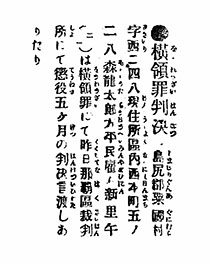 ●横領罪判決 島尻郡粟國村
字西二四八現住所區内西本町五ノ
二八森龍太郎方平民雇新里午
（二）は横領罪にて昨日那覇區裁判
所にて懲役五ヶ月の判決言渡しあ
りたり